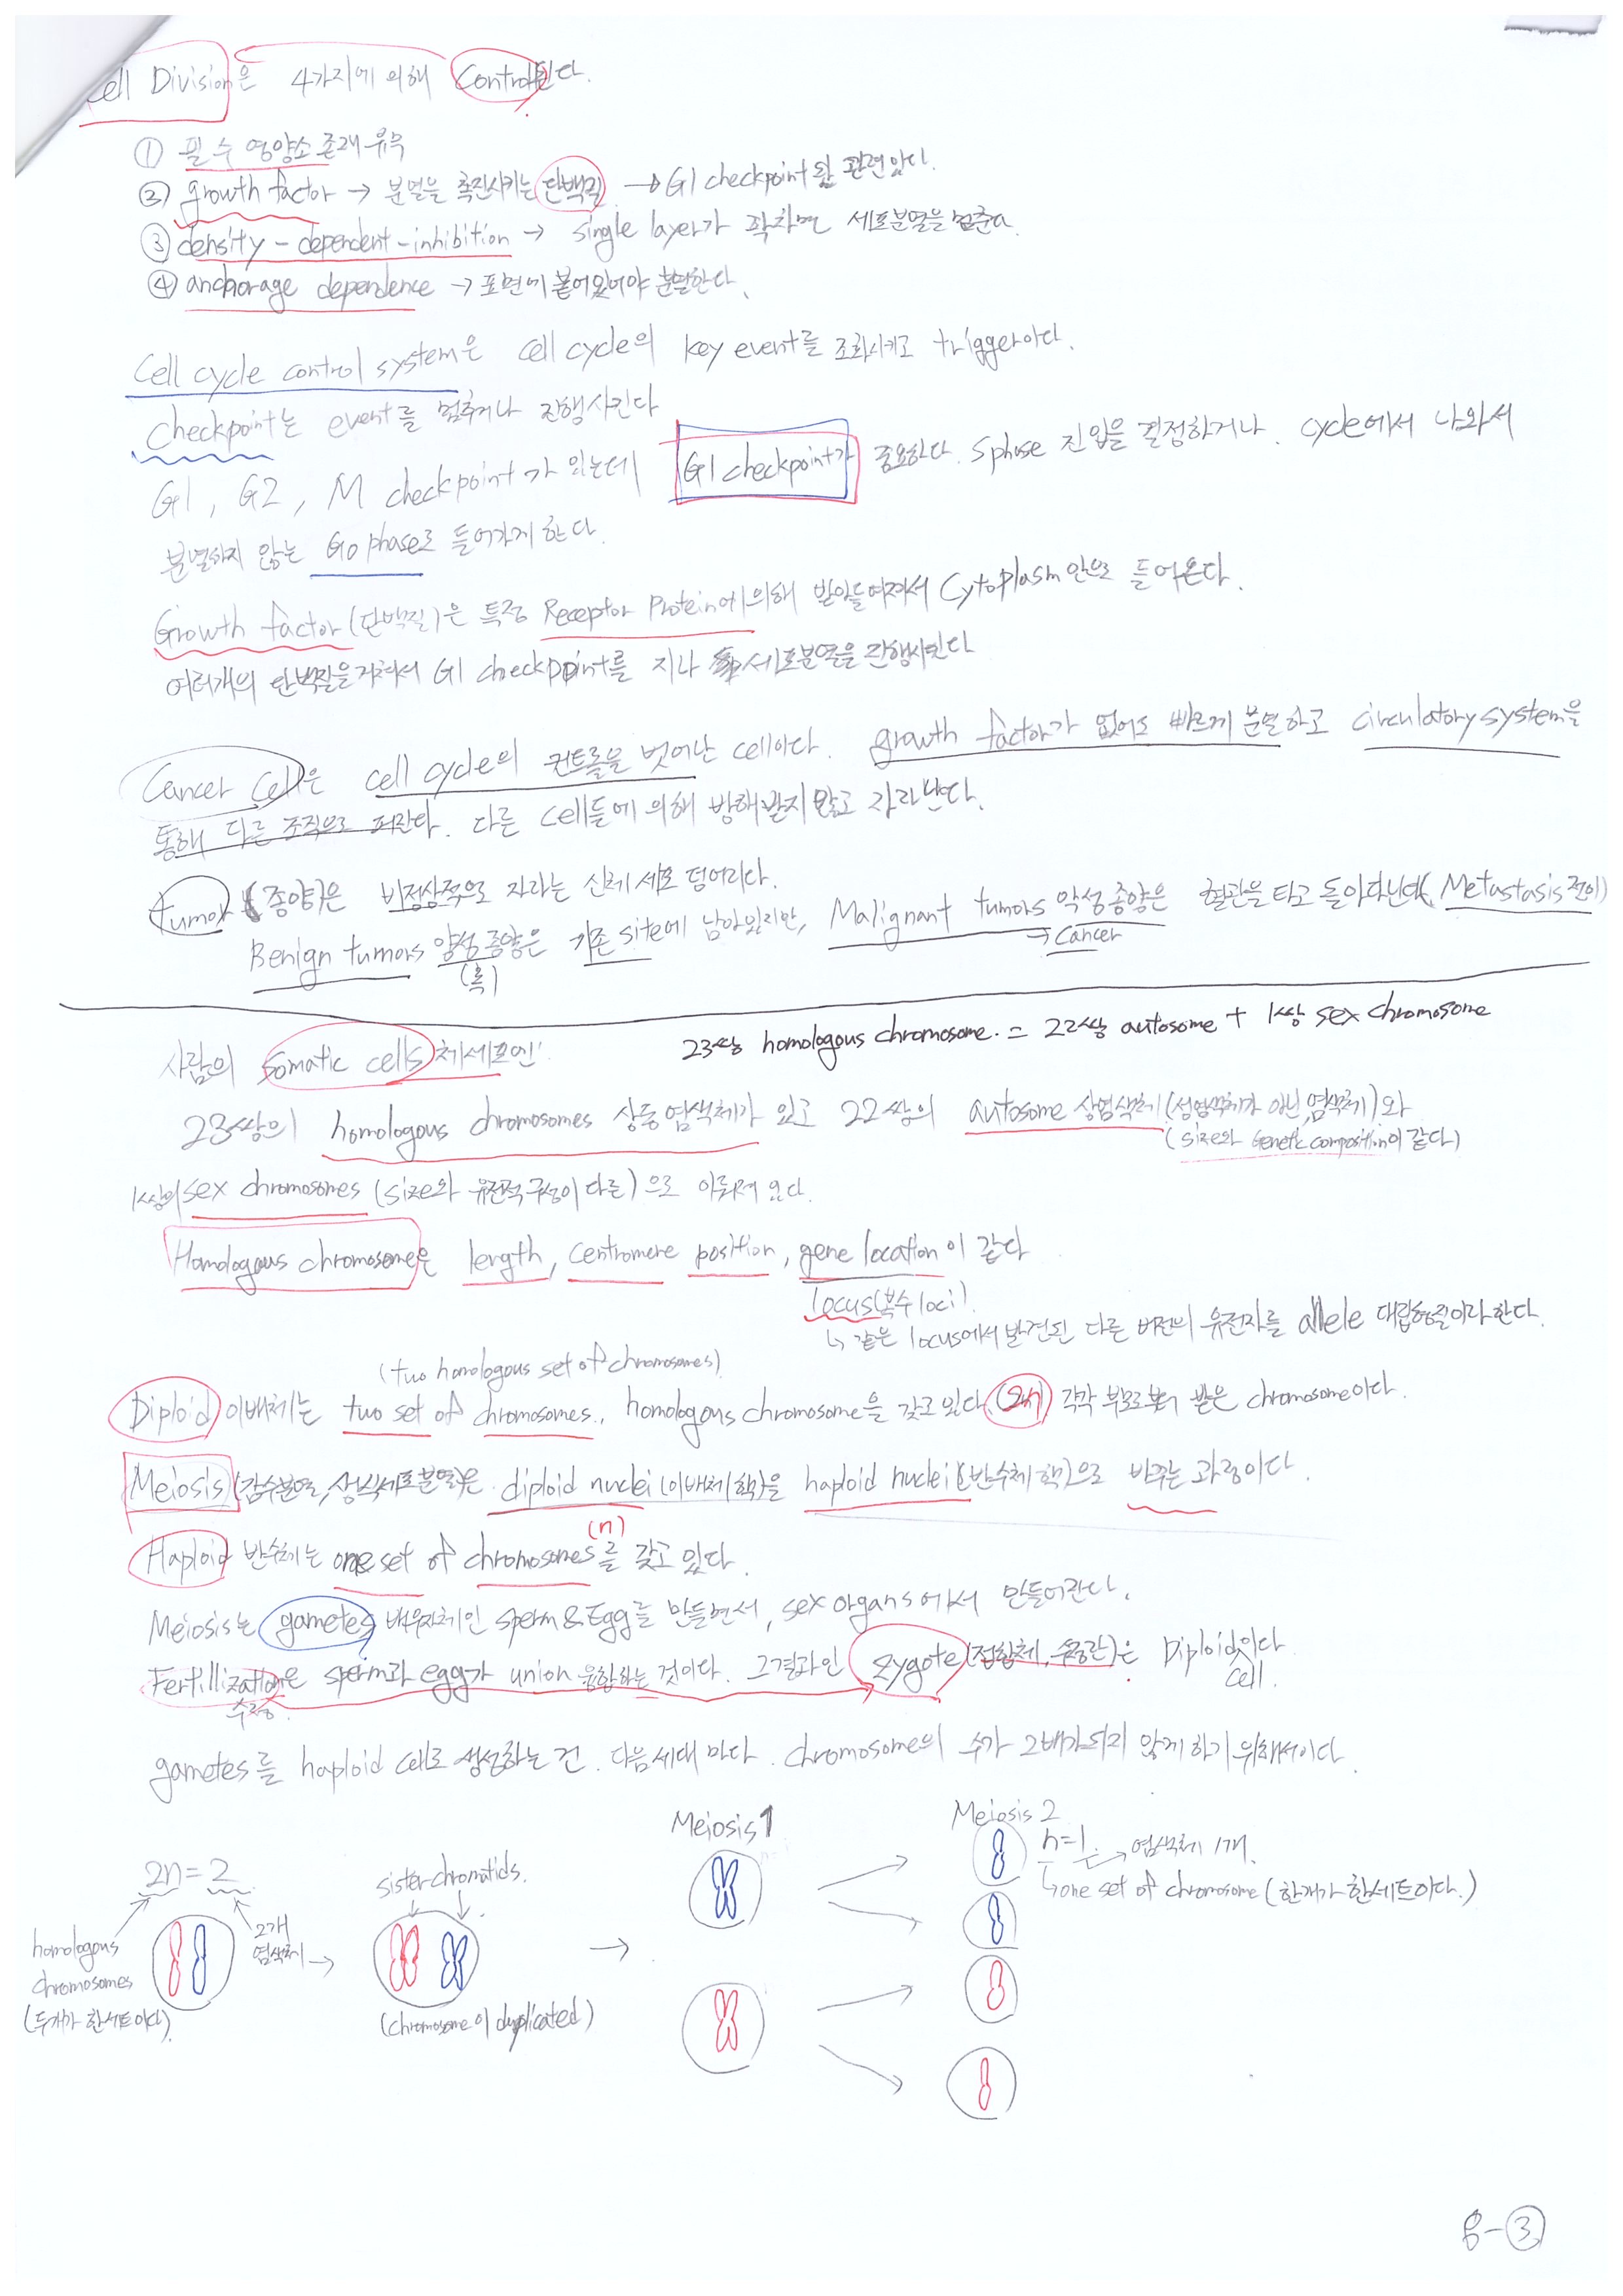 Cell Division은 4가지에 의해 Control된다.
① 필수 영양소 존재유무
② growth factor → 분열을 촉진시키는 단백질 → G1 checkpoint와 관련있다.
③ density-dependent-inhibition → single layer가 꽉차면 세포분열을 멈춘다.
④ anchorage dependence → 표면에 붙어있어야 분열한다.
Cell cycle control system은 cell cycle의 key event를 조화시키고 trigger이다.
Checkpoint는 event를 멈추거나 진행시킨다
G1, G2, M checkpoint가 있는데 G1 checkpoint가 중요하다. S phase 진입을 결정하거나. cycle에서 나와서
분열하지 않는 G0 phase로 들어가게 한다.
Growth factor(단백질)은 특정 Receptor Protein에 의해 받아들여져서 Cytoplasm 안으로 들어온다.
여러개의 단백질을 거쳐서 G1 checkpoint를 지나 세포분열을 진행시킨다
Cancer Cell은 cell cycle의 컨트롤을 벗어난 cell이다. growth factor가 없어도 빠르게 분열하고 circulatory system을
통해 다른 조직으로 퍼진다. 다른 cell들에 의해 방해받지 않고 자라난다.
tumor (종양)은 비정상적으로 자라는 신체 세포 덩어리다.
Benign tumors 양성종양은 기존 site에 남아있지만, Malignant tumors 악성종양은 혈관을 타고 돌아다닌다(Metastasis 전이)
(혹)
→ Cancer
23쌍 homologous chromosome. = 22쌍 autosome + 1쌍 sex chromosome
사람의 somatic cells 체세포엔
23쌍의 homologous chromosomes 상동염색체가 있고 22쌍의 autosome 상염색체(성염색체가 아닌 염색체)와
(size와 Genetic composition이 같다)
1쌍의 sex chromosomes (size와 유전적 구성이 다른)으로 이뤄져 있다.
Homologous chromosome은 length, centromere position, gene location이 같다
locus(복수 loci).
↳ 같은 locus에서 발견된 다른 버전의 유전자를 allele 대립형질이라 한다.
(two homologous set of chromosomes)
Diploid 이배체는 two set of chromosomes., homologous chromosome을 갖고 있다.(2n) 각각 부모로부터 받은 chromosome이다.
Meiosis(감수분열, 생식세포분열)은 diploid nuclei(이배체 핵)을 haploid nuclei(반수체 핵)으로 바꾸는 과정이다.
(n)
Haploid 반수체는 one set of chromosomes를 갖고 있다.
Meiosis는 gametes 배우자체인 sperm & Egg를 만들면서, sex organs에서 만들어진다.
Fertillization은 sperm과 egg가 union 융합하는 것이다. 그결과인 zygote (접합체, 수정란)은 Diploid이다
수정.
cell.
gametes를 haploid cell로 생성하는 건. 다음세대 마다. chromosome의 수가 2배가되지 않게 하기 위해서이다.
Meiosis 1
Meiosis 2
n=1 → 염색체 1개.
↳ one set of chromosome (한개가 한세트이다.)
2n = 2
sister chromatids.
homologous chromosomes (두개가 한세트이다)
2개 염색체 →
(chromosome이 duplicated)
8-③